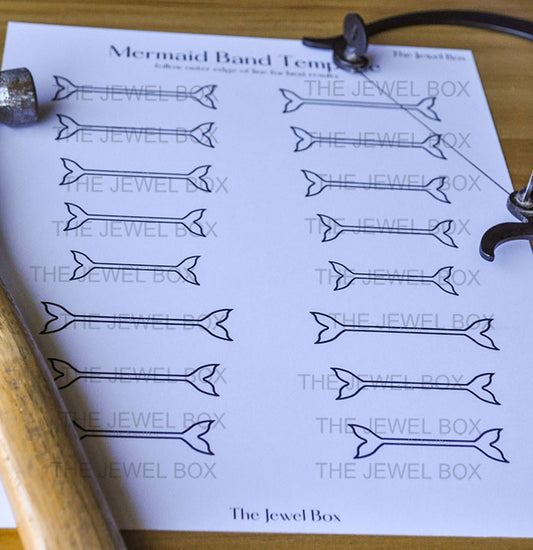 The Jewel Box
Mermaid Band Temp
follow outer edge of line for best results
THE JEWEL BOX THE JEWEL BOX
THE JEWEL BOX THE JEWEL BOX
THE JEWEL BOX THE JEWEL BOX
THE JEWEL BOX THE JEWEL BOX
THE JEWEL BOX THE JEWEL BOX
THE JEWEL BOX THE JEWEL BOX
THE JEWEL BOX THE JEWEL BOX
THE JEWEL BOX THE JEWEL BOX
THE JEWEL BOX THE JEWEL BOX
The Jewel Box